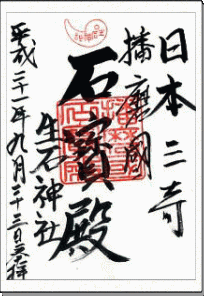 日本三奇
播磨國
石寳殿
生石神社
平成二十一年九月二十三日参拝